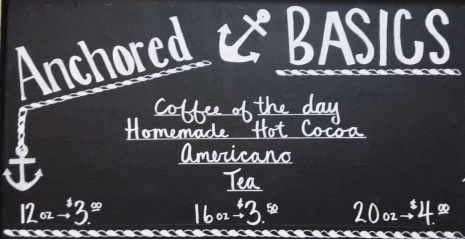 Anchored BASICS
Coffee of the day
Homemade Hot Cocoa
Americano
Tea
12oz→$3.00 16oz→$3.50 20oz→$4.00